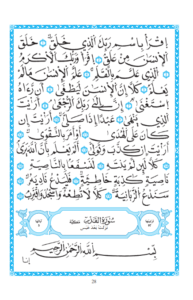 ٱقْرَأْ بِٱسْمِ رَبِّكَ ٱلَّذِى خَلَقَ ۝ خَلَقَ
ٱلْإِنسَٰنَ مِنْ عَلَقٍ ۝ ٱقْرَأْ وَرَبُّكَ ٱلْأَكْرَمُ
۝ ٱلَّذِى عَلَّمَ بِٱلْقَلَمِ ۝ عَلَّمَ ٱلْإِنسَٰنَ مَا لَمْ
يَعْلَمْ ۝ كَلَّآ إِنَّ ٱلْإِنسَٰنَ لَيَطْغَىٰٓ ۝ أَن رَّءَاهُ
ٱسْتَغْنَىٰٓ ۝ إِنَّ إِلَىٰ رَبِّكَ ٱلرُّجْعَىٰٓ ۝ أَرَءَيْتَ
ٱلَّذِى يَنْهَىٰ ۝ عَبْدًا إِذَا صَلَّىٰٓ ۝ أَرَءَيْتَ إِن
كَانَ عَلَى ٱلْهُدَىٰٓ ۝ أَوْ أَمَرَ بِٱلتَّقْوَىٰٓ ۝
أَرَءَيْتَ إِن كَذَّبَ وَتَوَلَّىٰٓ ۝ أَلَمْ يَعْلَم بِأَنَّ ٱللَّهَ يَرَىٰ
۝ كَلَّا لَئِن لَّمْ يَنتَهِ ۝ لَنَسْفَعًۢا بِٱلنَّاصِيَةِ ۝
نَاصِيَةٍ كَٰذِبَةٍ خَاطِئَةٍ ۝ فَلْيَدْعُ نَادِيَهُۥ ۝
سَنَدْعُ ٱلزَّبَانِيَةَ ۝ كَلَّا لَا تُطِعْهُ وَٱسْجُدْ وَٱقْتَرِب ۝
سُورَةُ ٱلْقَدْرِ
بِسْمِ ٱللَّهِ ٱلرَّحْمَٰنِ ٱلرَّحِيمِ